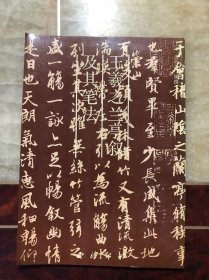 王羲之兰亭叙
及其笔法
于會稽山陰之蘭亭脩稧事
也羣賢畢至少長咸集此地
有崇山峻領茂林脩竹又有清流激
湍暎帶左右引以為流觴曲水
列坐其次雖無絲竹管弦之
盛一觴一詠亦足以暢敘幽情
是日也天朗氣清惠風和暢仰